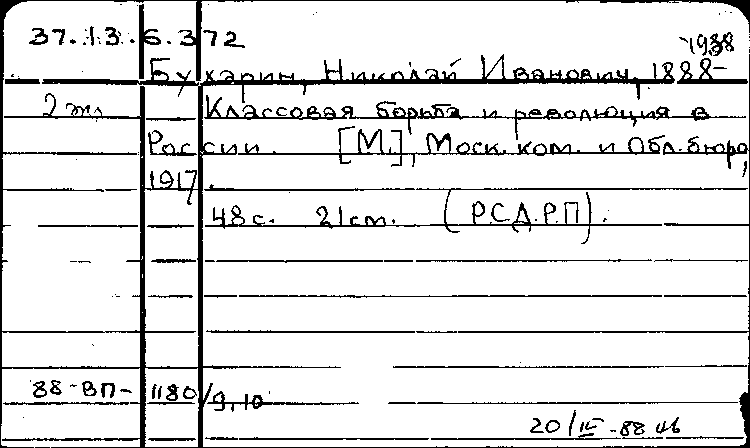 37.13.6.372
1938
Бухарин, Николай Иванович, 1888-
2 экз Классовая борьба и революция в
России. [М.], Моск. ком. и Обл. бюро,
1917.
48 с. 21 см. (Р.С.Д.Р.П).
88-ВП-1180/9,10
20/IV-88